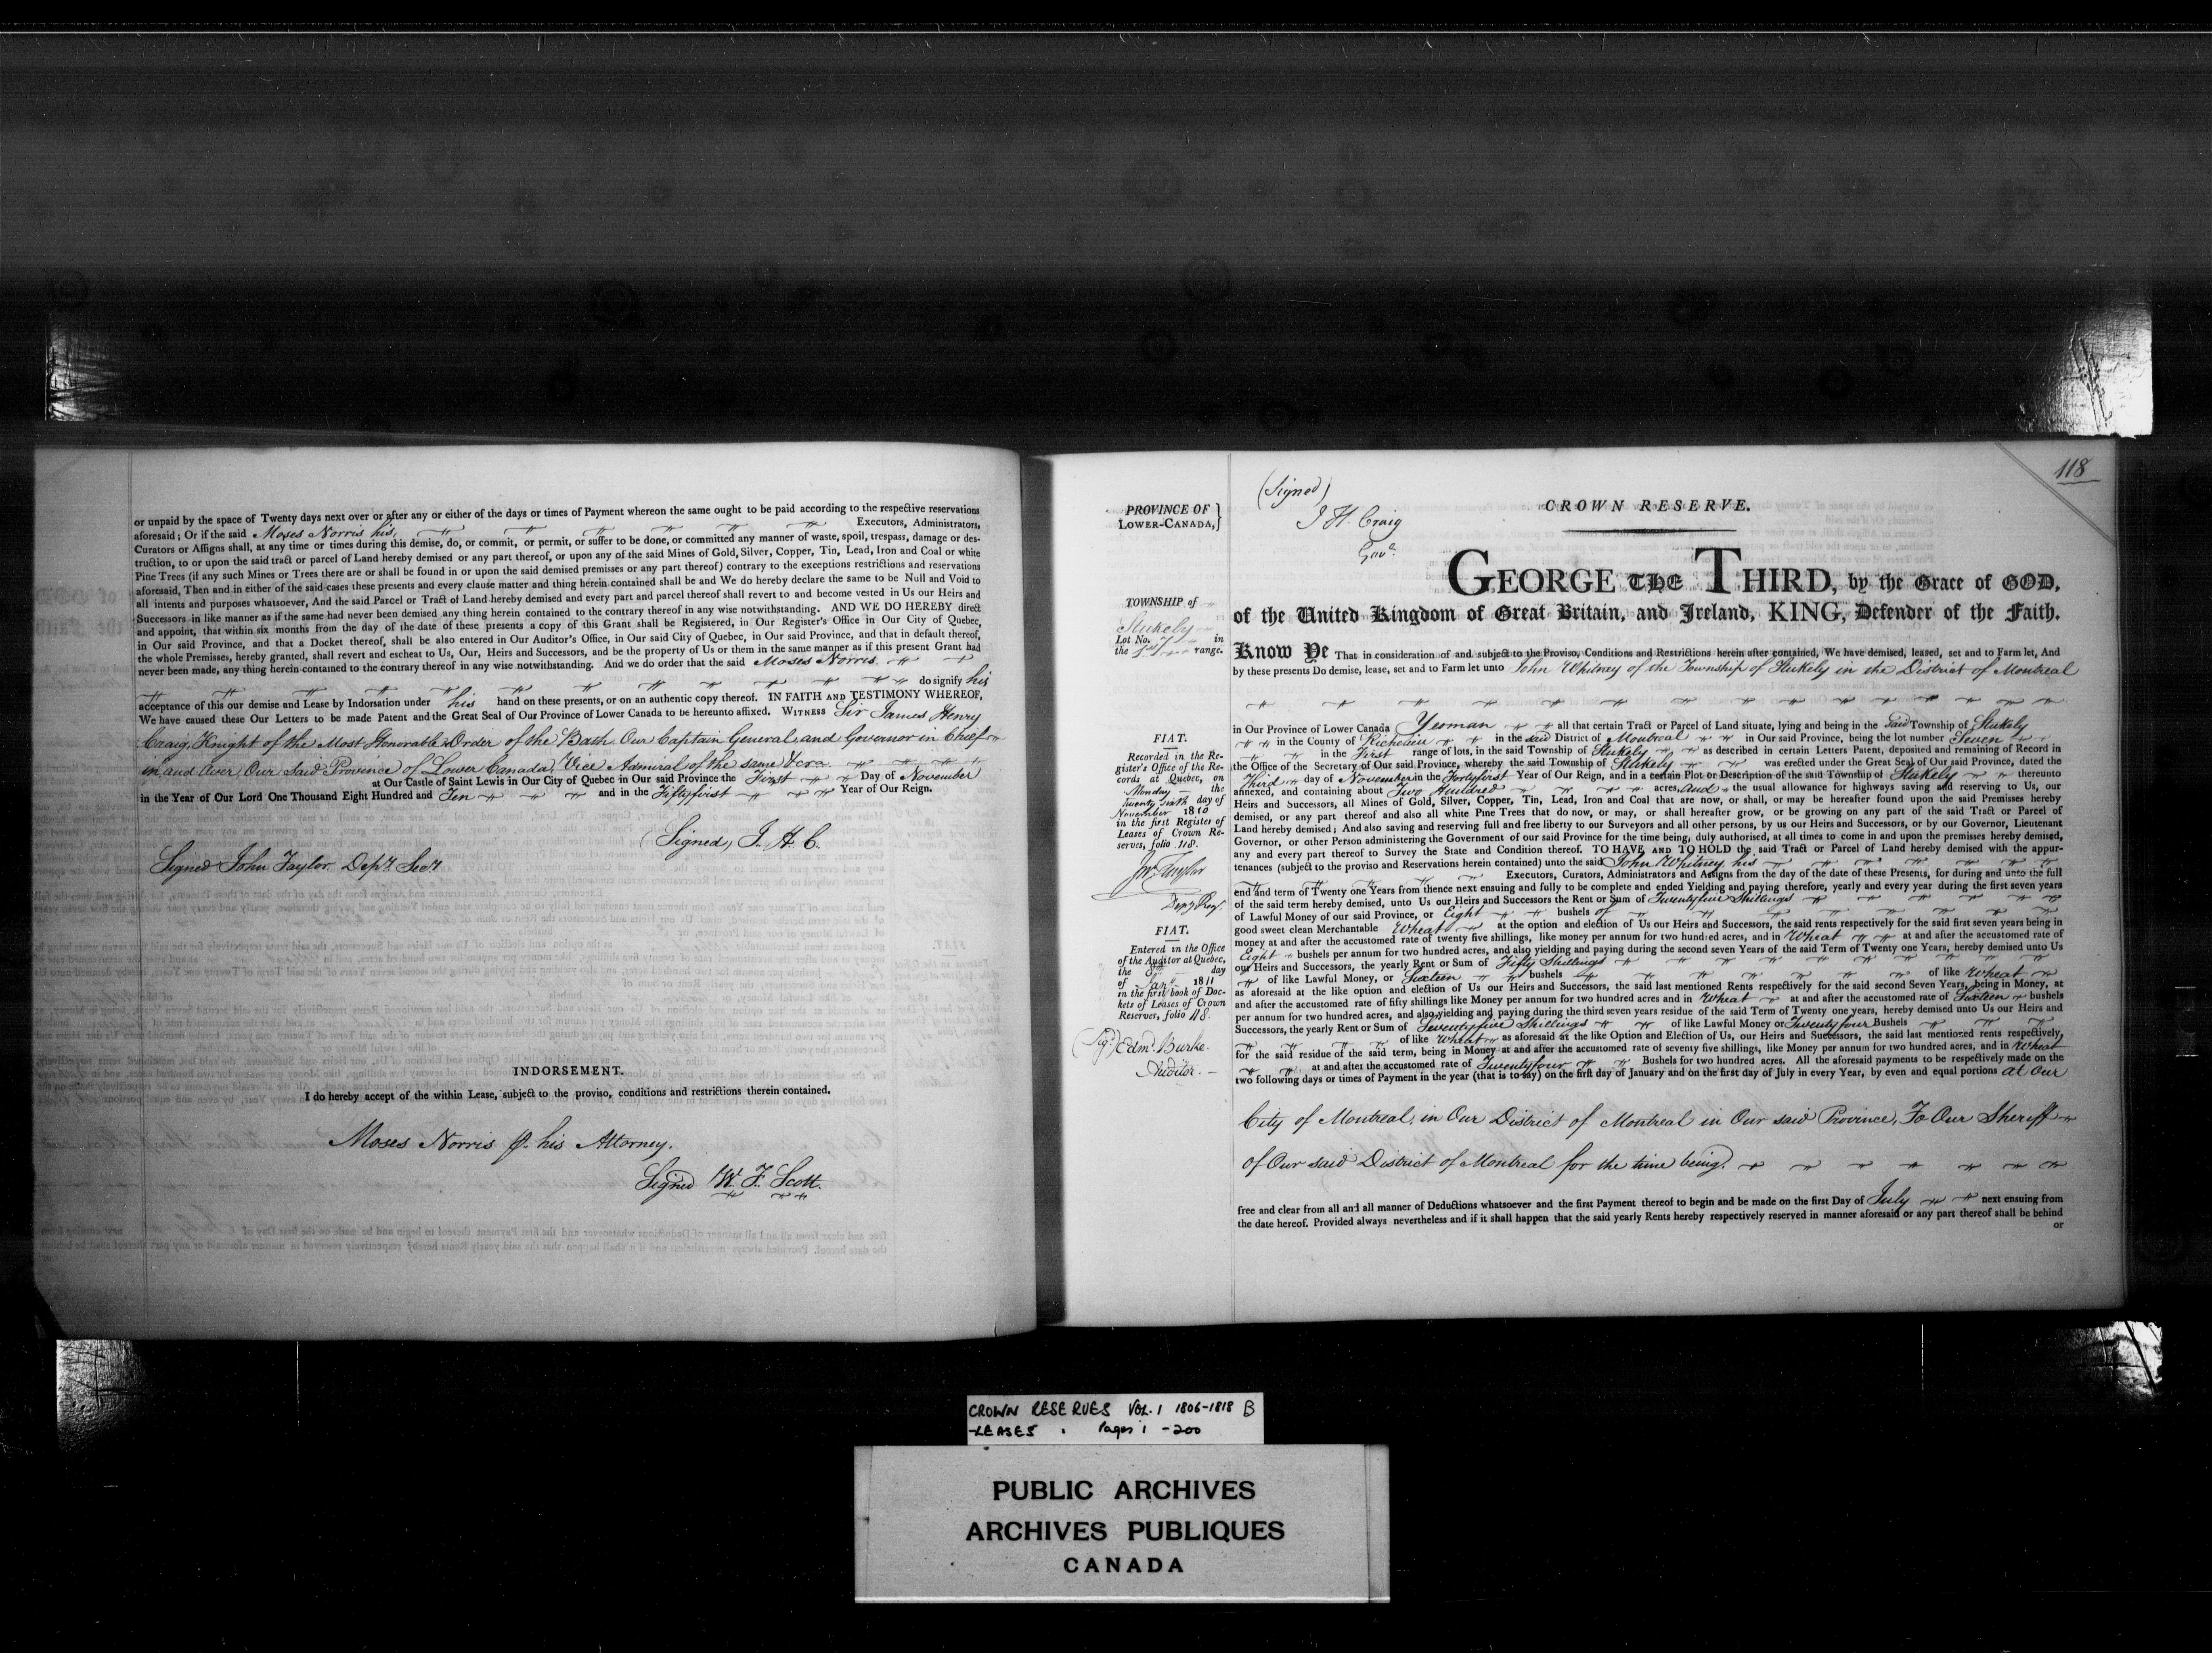 or unpaid by the space of Twenty days next over or after any or either of the days or times of Payment whereon the same ought to be paid according to the respective reservations
aforesaid; Or if the said Moses Norris his, Executors, Administrators,
Curators or Assigns shall, at any time or times during this demise, do, or commit, or permit, or suffer to be done, or committed any manner of waste, spoil, trespass, damage or des-
truction, to or upon the said tract or parcel of Land hereby demised or any part thereof, or upon any of the said Mines of Gold, Silver, Copper, Tin, Lead, Iron and Coal or white
Pine Trees (if any such Mines or Trees there are or shall be found in or upon the said demised premises or any part thereof) contrary to the exceptions restrictions and reservations
aforesaid, Then and in either of the said cases these presents and every clause matter and thing herein contained shall be and We do hereby declare the same to be Null and Void to
all intents and purposes whatsoever, And the said Parcel or Tract of Land hereby demised and every part and parcel thereof shall revert to and become vested in Us our Heirs and
Successors in like manner as if the same had never been demised any thing herein contained to the contrary thereof in any wise notwithstanding. AND WE DO HEREBY direct
and appoint, that within six months from the day of the date of these presents a copy of this Grant shall be Registered, in Our Register's Office in Our City of Quebec,
in Our said Province, and that a Docket thereof, shall be also entered in Our Auditor's Office, in Our said City of Quebec, in Our said Province, and that in default thereof,
the whole Premises, hereby granted, shall revert and escheat to Us, Our, Heirs and Successors, and be the property of Us or them in the same manner as if this present Grant had
never been made, any thing herein contained to the contrary thereof in any wise notwithstanding. And we do order that the said Moses Norris
do signify his
acceptance of this our demise and Lease by Indorsation under his hand on these presents, or on an authentic copy thereof. IN FAITH AND TESTIMONY WHEREOF,
We have caused these Our Letters to be made Patent and the Great Seal of Our Province of Lower Canada to be hereunto affixed. WITNESS Sir James Henry
Craig, Knight of the Most Honorable Order of the Bath Our Captain General and Governor in Chief
in and Over Our Said Province of Lower Canada, Vice Admiral of the same &cra.
at Our Castle of Saint Lewis in Our City of Quebec in Our said Province the First Day of November
in the Year of Our Lord One Thousand Eight Hundred and Ten and in the Fiftyfirst Year of Our Reign.
(Signed) J. H. C.
Signed John Taylor Depy. Secy.
INDORSEMENT.
I do hereby accept of the within Lease, subject to the proviso, conditions and restrictions therein contained.
Moses Norris p. his Attorney.
Signed W. F. Scott.
118
(Signed)
J. H. Craig
Govr.
CROWN RESERVE.
PROVINCE OF
LOWER-CANADA, }
GEORGE THE THIRD, by the Grace of GOD,
of the United Kingdom of Great Britain, and Ireland, KING, Defender of the Faith.
TOWNSHIP of
Stukely
Lot No. 7 in
the 1st range.
Know Ye That in consideration of and subject to the Proviso, Conditions and Restrictions herein after contained, We have demised, leased, set and to Farm let, And
by these presents Do demise, lease, set and to Farm let unto John Whitney of the Township of Stukely in the District of Montreal
in Our Province of Lower Canada Yeoman all that certain Tract or Parcel of Land situate, lying and being in the Said Township of Stukely
in the County of Richelieu in the said District of Montreal in Our said Province, being the lot number Seven
in the First range of lots, in the said Township of Stukely as described in certain Letters Patent, deposited and remaining of Record in
the Office of the Secretary of Our said Province, whereby the said Township of Stukely was erected under the Great Seal of Our said Province, dated the
Third day of November in the Fortyfirst Year of Our Reign, and in a certain Plot or Description of the said Township of Stukely thereunto
annexed, and containing about Two Hundred acres, and the usual allowance for highways saving and reserving to Us, our
Heirs and Successors, all Mines of Gold, Silver, Copper, Tin, Lead, Iron and Coal that are now, or shall, or may be hereafter found upon the said Premises hereby
demised, or any part thereof and also all white Pine Trees that do now, or may, or shall hereafter grow, or be growing on any part of the said Tract or Parcel of
Land hereby demised; And also saving and reserving full and free liberty to our Surveyors and all other persons, by us our Heirs and Successors, or by our Governor, Lieutenant
Governor, or other Person administering the Government of our said Province for the time being, duly authorised, at all times to come in and upon the premises hereby demised,
any and every part thereof to Survey the State and Condition thereof. TO HAVE AND TO HOLD the said Tract or Parcel of Land hereby demised with the appur-
tenances (subject to the proviso and Reservations herein contained) unto the said John Whitney his
Executors, Curators, Administrators and Assigns from the day of the date of these Presents, for during and unto the full
end and term of Twenty one Years from thence next ensuing and fully to be complete and ended Yielding and paying therefore, yearly and every year during the first seven years
of the said term hereby demised, unto Us our Heirs and Successors the Rent or Sum of Twentyfive Shillings
of Lawful Money of our said Province, or Eight bushels of
good sweet clean Merchantable Wheat at the option and election of Us our Heirs and Successors, the said rents respectively for the said first seven years being in
money at and after the accustomed rate of twenty five shillings, like money per annum for two hundred acres, and in Wheat at and after the accustomed rate of
Eight bushels per annum for two hundred acres, and also yielding and paying during the second seven Years of the said Term of Twenty one Years, hereby demised unto Us
our Heirs and Successors, the yearly Rent or Sum of Fifty Shillings
of like Lawful Money, or Sixteen bushels of like Wheat
as aforesaid at the like option and election of Us our Heirs and Successors, the said last mentioned Rents respectively for the said second Seven Years, being in Money, at
and after the accustomed rate of fifty shillings like Money per annum for two hundred acres and in Wheat at and after the accustomed rate of Sixteen bushels
per annum for two hundred acres, and also yielding and paying during the third seven years residue of the said Term of Twenty one years, hereby demised unto Us our Heirs and
Successors, the yearly Rent or Sum of Seventyfive Shillings of like Lawful Money or Twentyfour Bushels
of like Wheat as aforesaid at the like Option and Election of Us, our Heirs and Successors, the said last mentioned rents respectively,
for the said residue of the said term, being in Money at and after the accustomed rate of seventy five shillings, like Money per annum for two hundred acres, and in Wheat
at and after the accustomed rate of Twentyfour Bushels for two hundred acres. All the aforesaid payments to be respectively made on the
two following days or times of Payment in the year (that is to say) on the first day of January and on the first day of July in every Year, by even and equal portions at Our
City of Montreal, in Our District of Montreal in Our said Province, To Our Sheriff
of Our said District of Montreal for the time being.
free and clear from all and all manner of Deductions whatsoever and the first Payment thereof to begin and be made on the first Day of July next ensuing from
the date hereof. Provided always nevertheless and if it shall happen that the said yearly Rents hereby respectively reserved in manner aforesaid or any part thereof shall be behind
or
FIAT.
Recorded in the Re-
gister's Office of the Re-
cords at Quebec, on
Monday the
Twenty Sixth day of
November 1810
in the first Register of
Leases of Crown Re-
serves, folio 118.
Jno. Taylor
Depy. Regr.
FIAT.
Entered in the Office
of the Auditor at Quebec,
the 8th day
of Jany. 1811
in the first book of Doc-
kets of Leases of Crown
Reserves, folio 118.
(Sigd.) Edmd. Burke.
Auditor.
CROWN RESERVES VOL. 1 1806-1818 B
-LEASES Pages 1 -200
PUBLIC ARCHIVES
ARCHIVES PUBLIQUES
CANADA